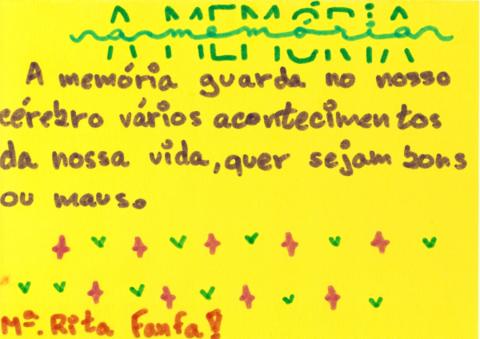 A MEMÓRIA
a memória
A memória guarda no nosso
cérebro vários acontecimentos
da nossa vida, quer sejam bons
ou maus.
Mª. Rita Fanfa!